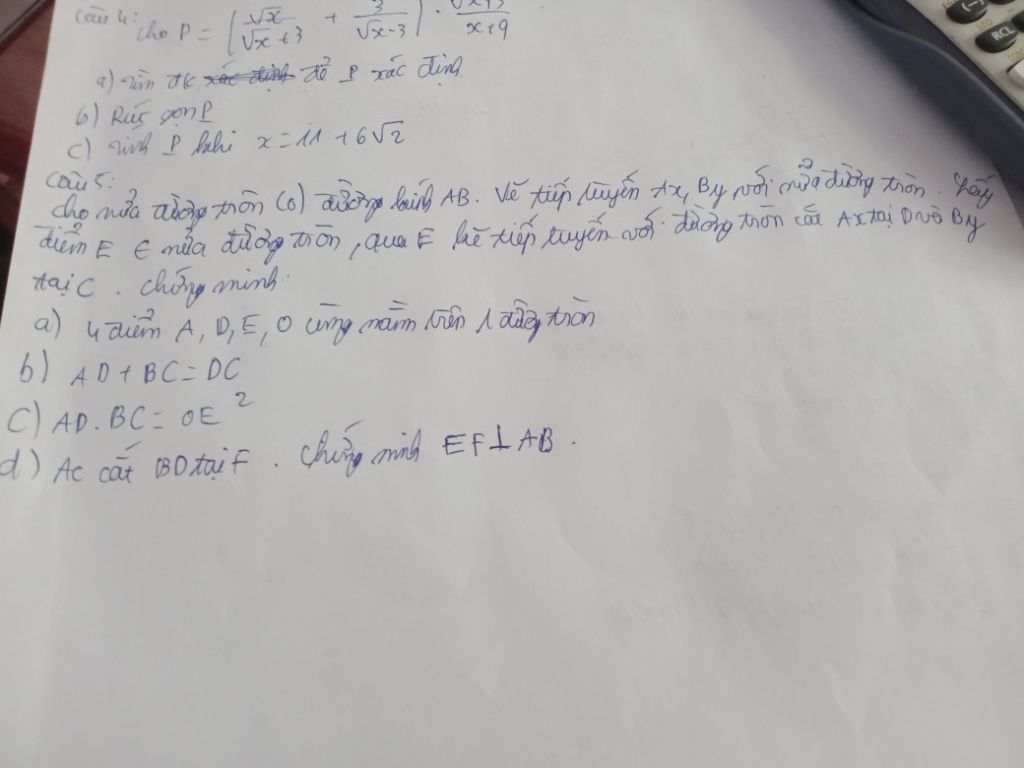 Câu 4: cho P = (√x/(√x+3) + 3/(√x-3)) · √x+3/(x+9)
a) tìm đk để P xác định
b) Rút gọn P
c) tính P khi x = 11 + 6√2
Câu 5:
cho nửa đường tròn (O) đường kính AB. Vẽ tiếp tuyến Ax, By với nửa đường tròn. Lấy
điểm E ∈ nửa đường tròn, qua E kẻ tiếp tuyến với đường tròn cắt Ax tại D và By
tại C. chứng minh:
a) 4 điểm A, D, E, O cùng nằm trên 1 đường tròn
b) AD + BC = DC
c) AD . BC = OE²
d) AC cắt BD tại F. Chứng minh EF ⊥ AB.
RCL
(-)